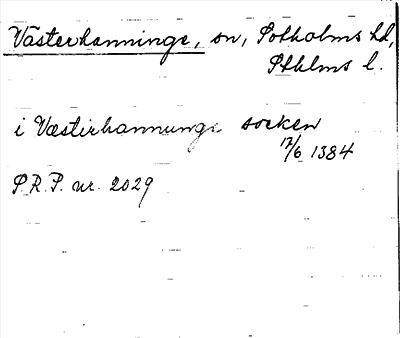 Västerhanninge, sn, Sotholms hd,
Sthlms l.
i Væstirhanninge socken
17/6 1384
S.R.P. nr. 2029